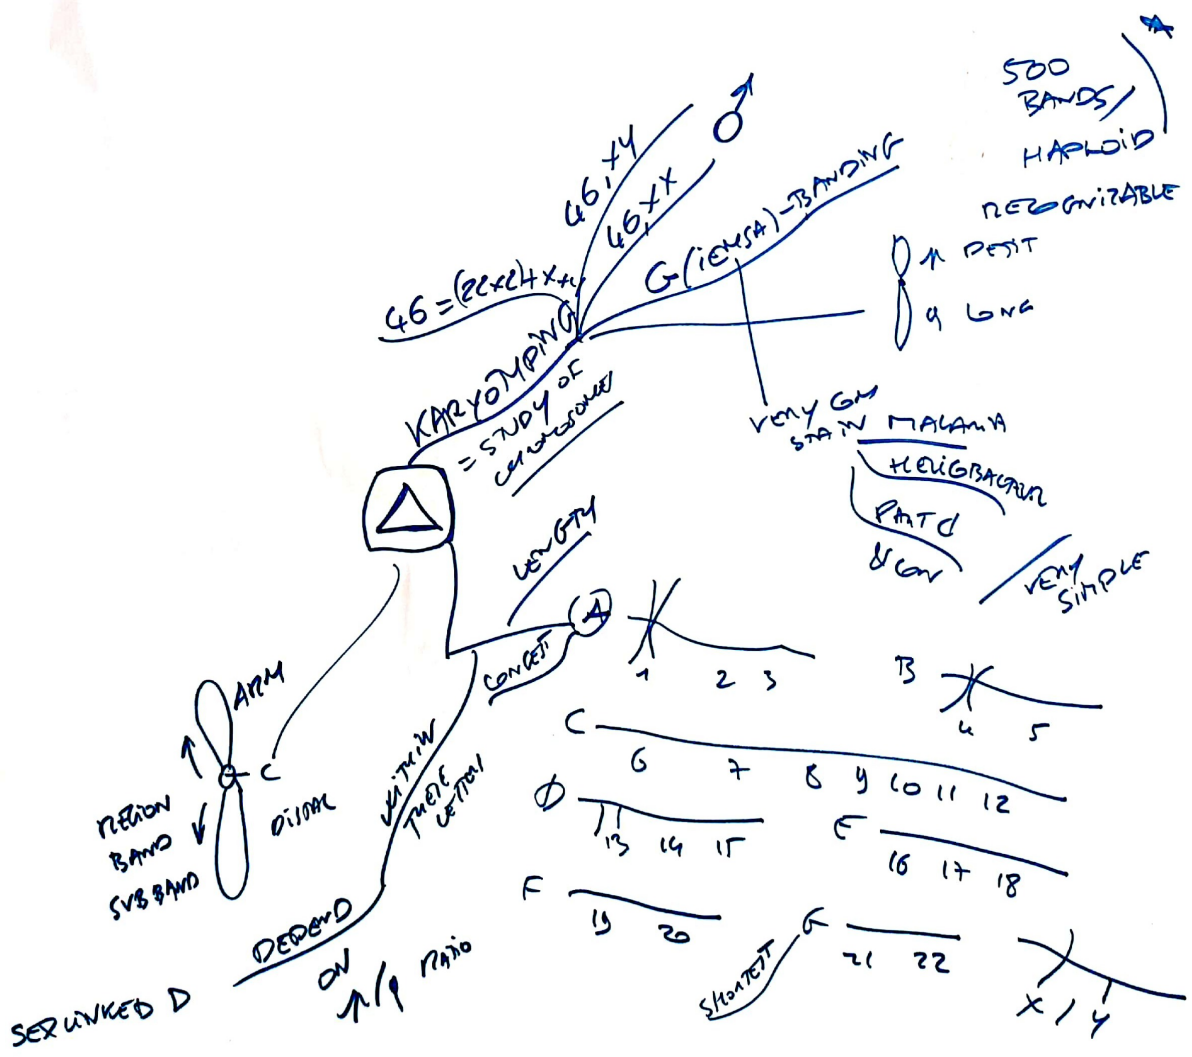 500
BANDS/
HAPLOID
RECOGNIZABLE
46,XY
46,XX
G(IEMSA)-BANDING
46=(22x2)+X
KARYOTYPING
= STUDY OF
CHROMOSOMES
P PETIT
q LONG
VERY
STAIN MALARIA
HELICOBACTER
PART
VERY
SIMPLE
LENGTH
LONGEST A
1 2 3
B
4 5
C
6 7 8 9 10 11 12
D
13 14 15
E
16 17 18
F
19 20
G
21 22
SHORTEST
X / Y
ARM
C
DISTAL
REGION
BAND
SUBBAND
WITHIN
THESE
LETTERS
DEPEND
ON
P/q RATIO
SEX LINKED D